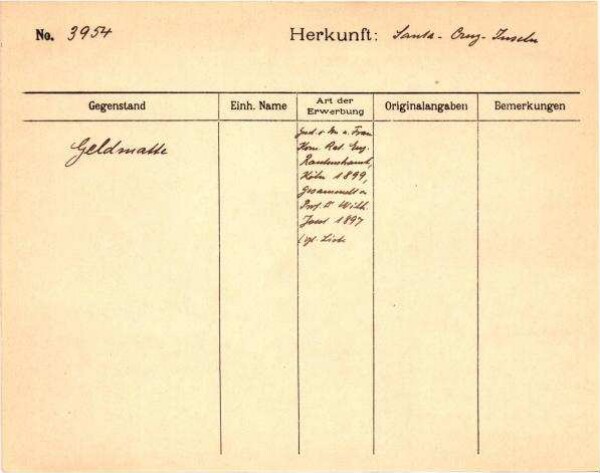 No. 3954 Herkunft: Santa-Cruz-Inseln
Gegenstand Einh. Name Art der Erwerbung Originalangaben Bemerkungen
Geldmatte
Frau
Kom. Rat Eug.
Rautenstrauch,
Köln 1899,
Gesammelt v.
Prof. Dr Wilh.
Joest 1897
(vgl. Liste